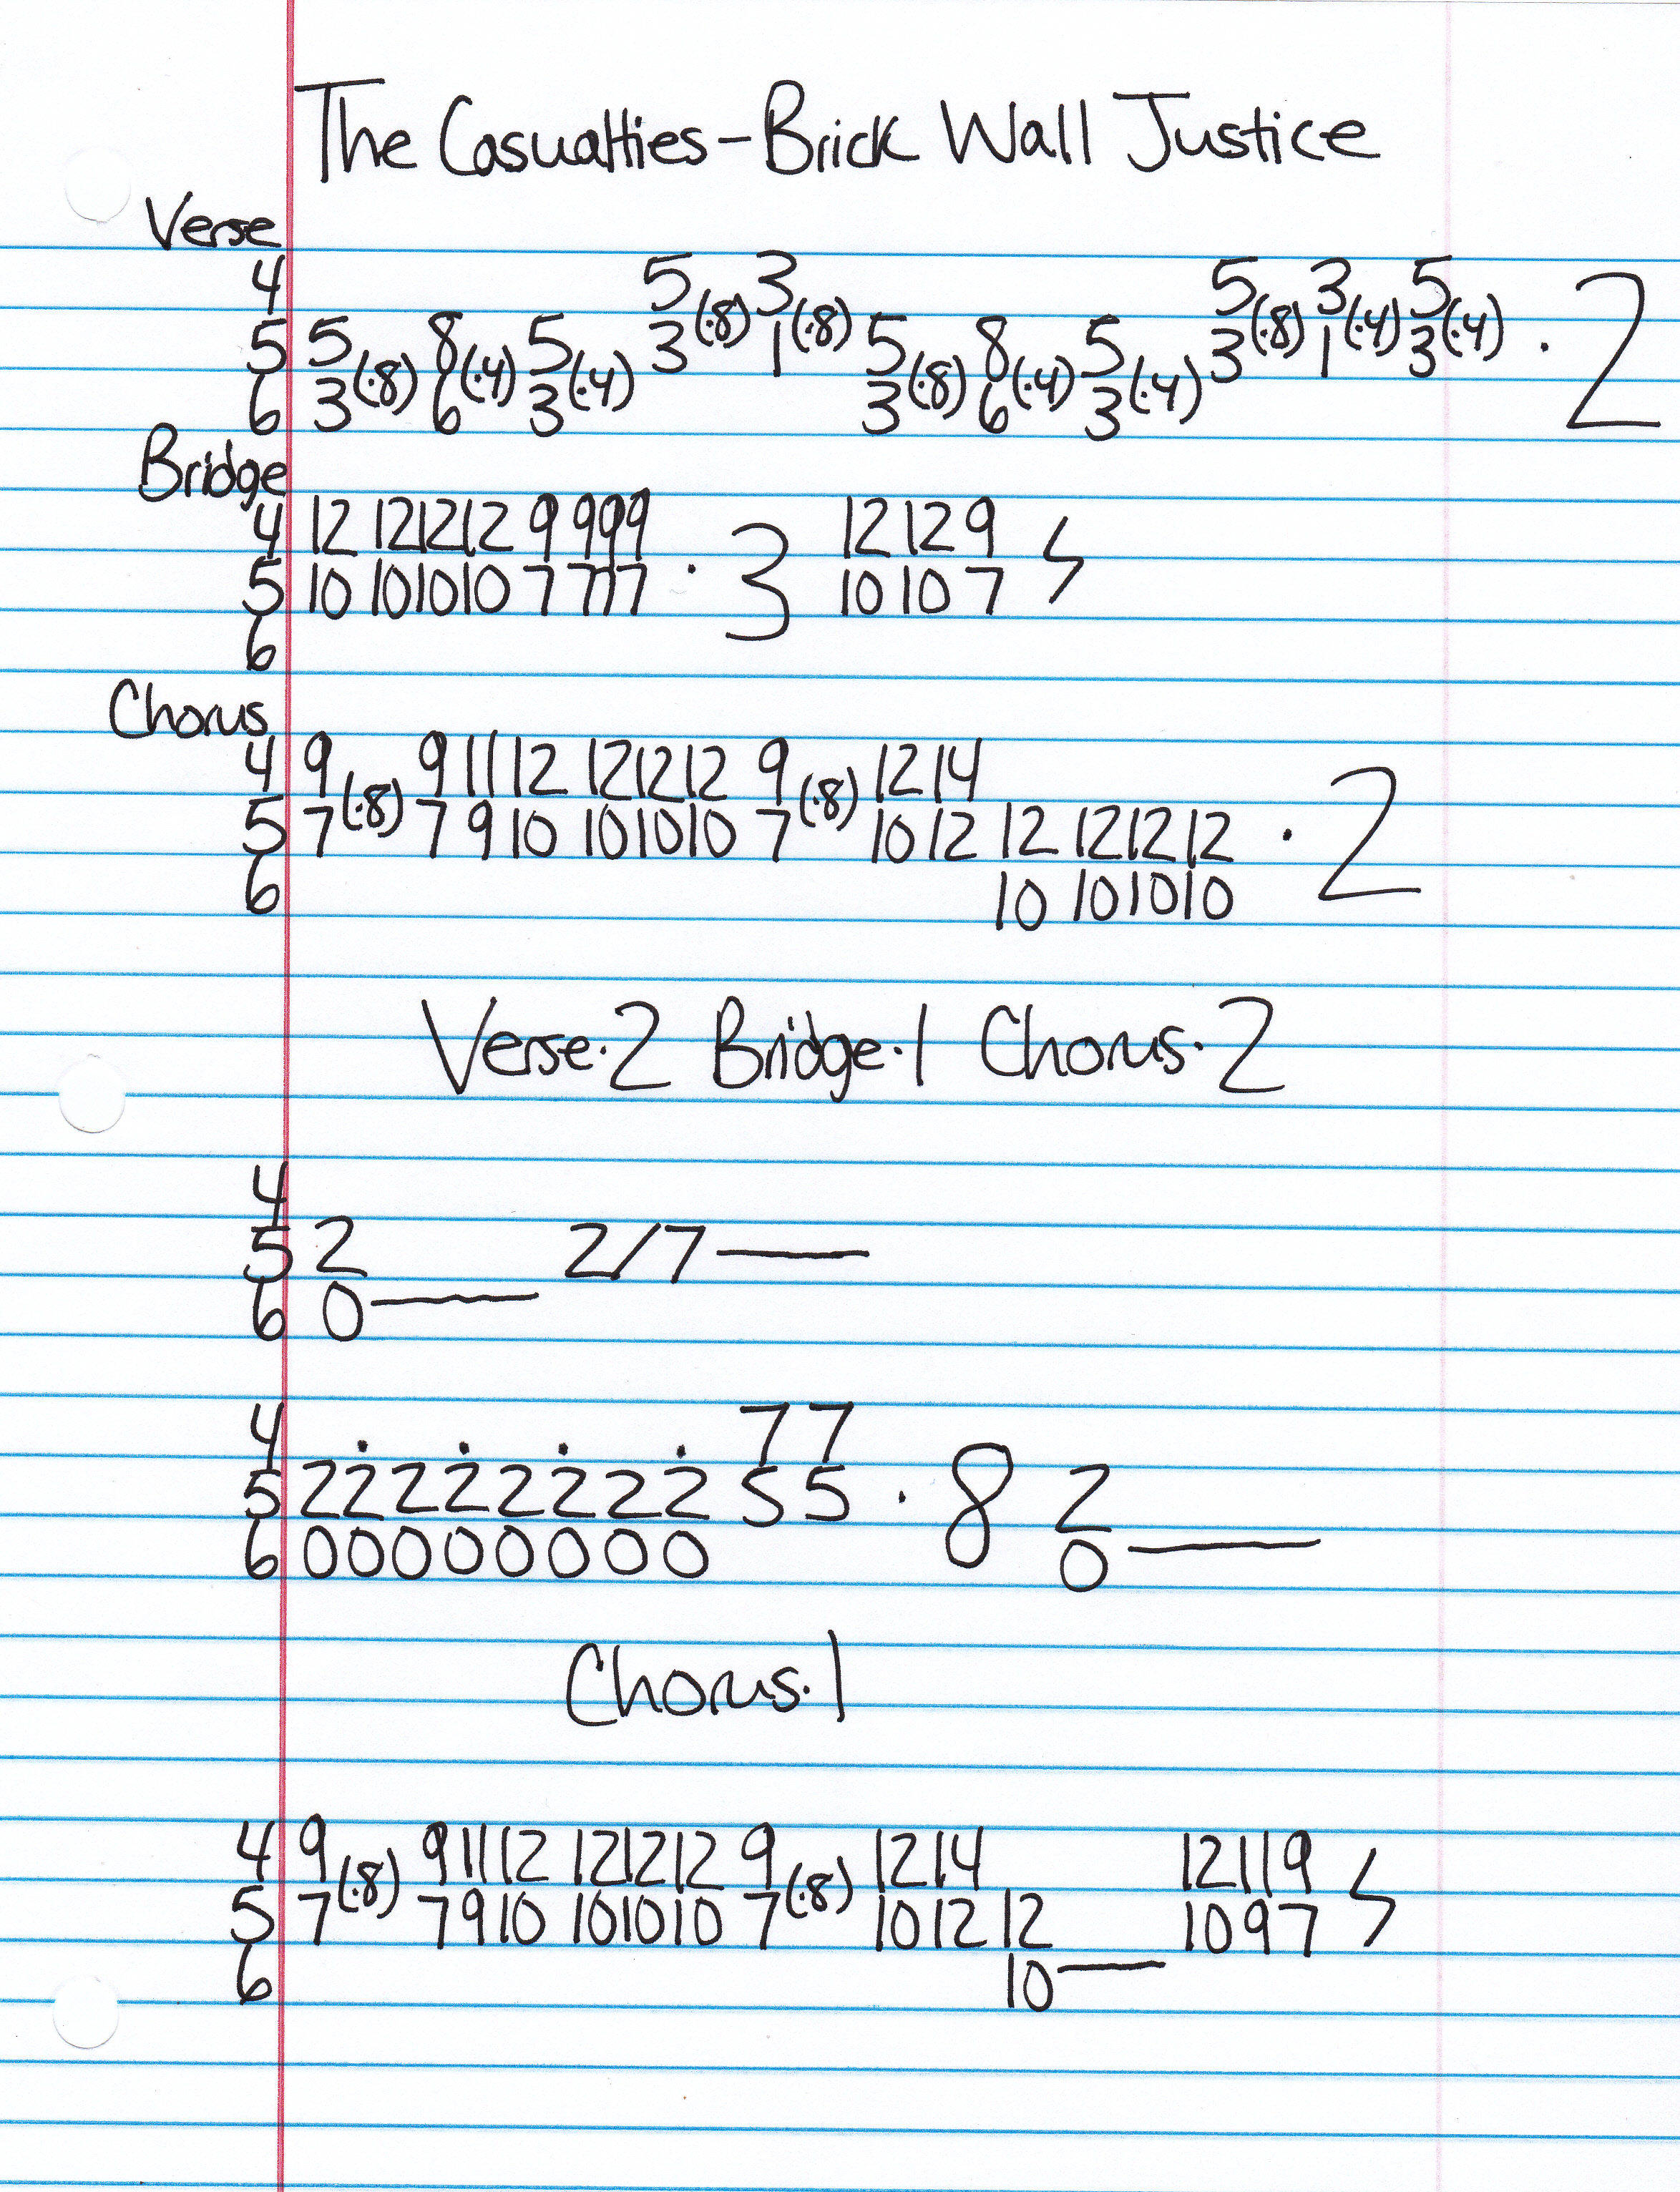 The Casualties-Brick Wall Justice
Verse
4 5 3 5 3 5
5 5 8 5 3(·8) 1(·8) 5 8 5 3(·8) 1(·4) 3(·4) · 2
6 3(·8) 6(·4) 3(·4) 3(·8) 6(·4) 3(·4)
Bridge
4 12 12 12 12 9 9 9 9 12 12 9
5 10 10 10 10 7 7 7 7 · 3 10 10 7
6
Chorus
4 9 9 11 12 12 12 12 9 12 14
5 7(·8) 7 9 10 10 10 10 7(·8) 10 12 12 12 12 12 · 2
6 10 10 10 10
Verse·2 Bridge·1 Chorus·2
4
5 2 2/7—
6 0—
4 7 7
5 2 2 2 2 2 2 2 2 5 5 · 8 2
6 0 0 0 0 0 0 0 0 0—
Chorus·1
4 9 9 11 12 12 12 12 9 12 14 12 11 9
5 7(·8) 7 9 10 10 10 10 7(·8) 10 12 12 10 9 7
6 10—